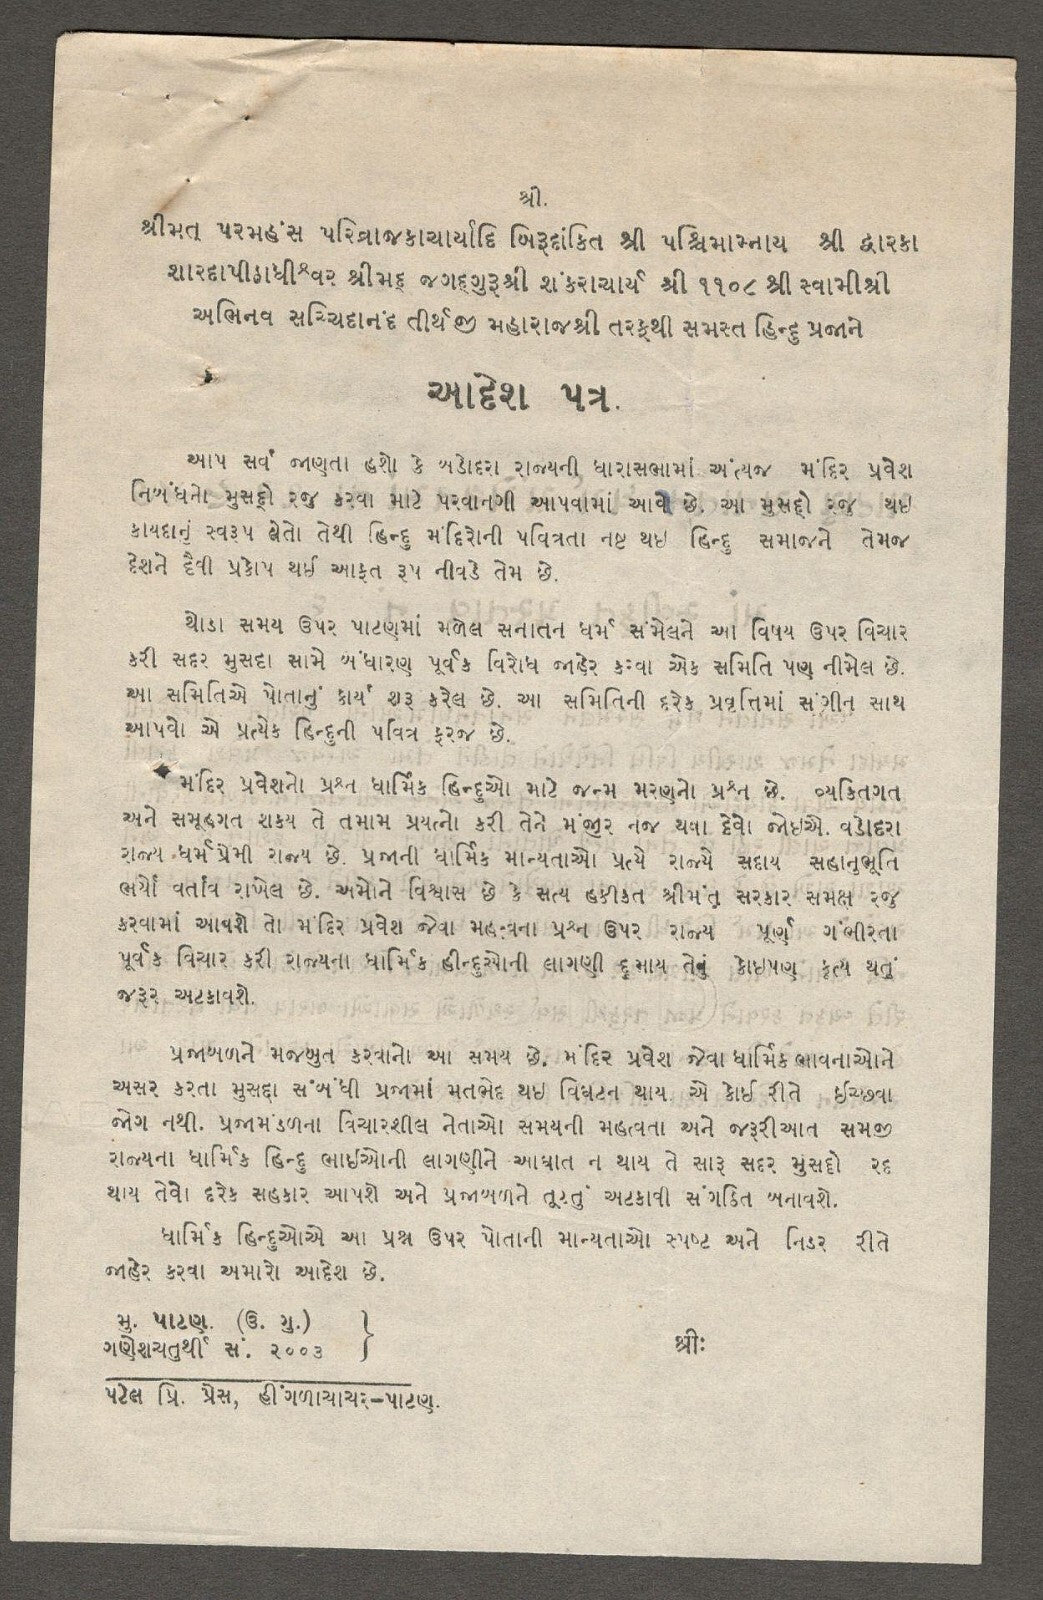 શ્રી.
શ્રીમત્ પરમહંસ પરિવ્રાજકાચાર્યાદિ બિરૂદાંકિત શ્રી પશ્ચિમામ્નાય શ્રી દ્વારકા
શારદાપીઠાધીશ્વર શ્રીમદ્ જગદ્ગુરૂશ્રી શંકરાચાર્ય શ્રી ૧૧૦૮ શ્રી સ્વામીશ્રી
અભિનવ સચ્ચિદાનંદ તીર્થજી મહારાજશ્રી તરફથી સમસ્ત હિન્દુ પ્રજાને
આદેશ પત્ર.
આપ સર્વ જાણતા હશો કે બડોદરા રાજ્યની ધારાસભામાં અંત્યજ મંદિર પ્રવેશ
નિબંધનો મુસદ્દો રજુ કરવા માટે પરવાનગી આપવામાં આવી છે. આ મુસદ્દો રજુ થઇ
કાયદાનું સ્વરૂપ લેતો તેથી હિન્દુ મંદિરોની પવિત્રતા નષ્ટ થઇ હિન્દુ સમાજને તેમજ
દેશને દૈવી પ્રકોપ થઈ આફત રૂપ નીવડે તેમ છે.
થોડા સમય ઉપર પાટણમાં મળેલ સનાતન ધર્મ સંમેલને આ વિષય ઉપર વિચાર
કરી સદર મુસદ્દા સામે બંધારણ પૂર્વક વિરોધ જાહેર કરવા એક સમિતિ પણ નીમેલ છે.
આ સમિતિએ પોતાનું કાર્ય શરૂ કરેલ છે. આ સમિતિની દરેક પ્રવૃત્તિમાં સંગીન સાથ
આપવો એ પ્રત્યેક હિન્દુની પવિત્ર ફરજ છે.
મંદિર પ્રવેશનો પ્રશ્ન ધાર્મિક હિન્દુઓ માટે જન્મ મરણનો પ્રશ્ન છે. વ્યક્તિગત
અને સમૂહગત શકય તે તમામ પ્રયત્નો કરી તેને મંજુર નજ થવા દેવો જોઇએ. વડોદરા
રાજ્ય ધર્મપ્રેમી રાજ્ય છે. પ્રજાની ધાર્મિક માન્યતાઓ પ્રત્યે રાજ્યે સદાય સહાનુભૂતિ
ભર્યો વર્તાવ રાખેલ છે. અમોને વિશ્વાસ છે કે સત્ય હકીકત શ્રીમંત સરકાર સમક્ષ રજુ
કરવામાં આવશે તો મંદિર પ્રવેશ જેવા મહત્વના પ્રશ્ન ઉપર રાજ્ય પૂર્ણ ગંભીરતા
પૂર્વક વિચાર કરી રાજ્યના ધાર્મિક હીન્દુઓની લાગણી દૂભાય તેવું કોઇપણ કૃત્ય થતું
જરૂર અટકાવશે.
પ્રજાબળને મજબુત કરવાનો આ સમય છે. મંદિર પ્રવેશ જેવા ધાર્મિક ભાવનાઓને
અસર કરતા મુસદ્દા સંબંધી પ્રજામાં મતભેદ થઇ વિઘટન થાય એ કોઈ રીતે ઈચ્છવા
જોગ નથી. પ્રજામંડળના વિચારશીલ નેતાઓ સમયની મહત્વતા અને જરૂરીઆત સમજી
રાજ્યના ધાર્મિક હિન્દુ ભાઈઓની લાગણીને આઘાત ન થાય તે સારૂ સદર મુસદ્દો રદ
થાય તેવો દરેક સહકાર આપશે અને પ્રજાબળને તૂટતું અટકાવી સંગઠિત બનાવશે.
ધાર્મિક હિન્દુઓએ આ પ્રશ્ન ઉપર પોતાની માન્યતાઓ સ્પષ્ટ અને નિડર રીતે
જાહેર કરવા અમારો આદેશ છે.
મુ. પાટણ. (ઉ. ગુ.)
ગણેશચતુર્થી સં. ૨૦૦૩
શ્રીઃ
પટેલ પ્રિ. પ્રેસ, હીંગળાચાચર–પાટણ.